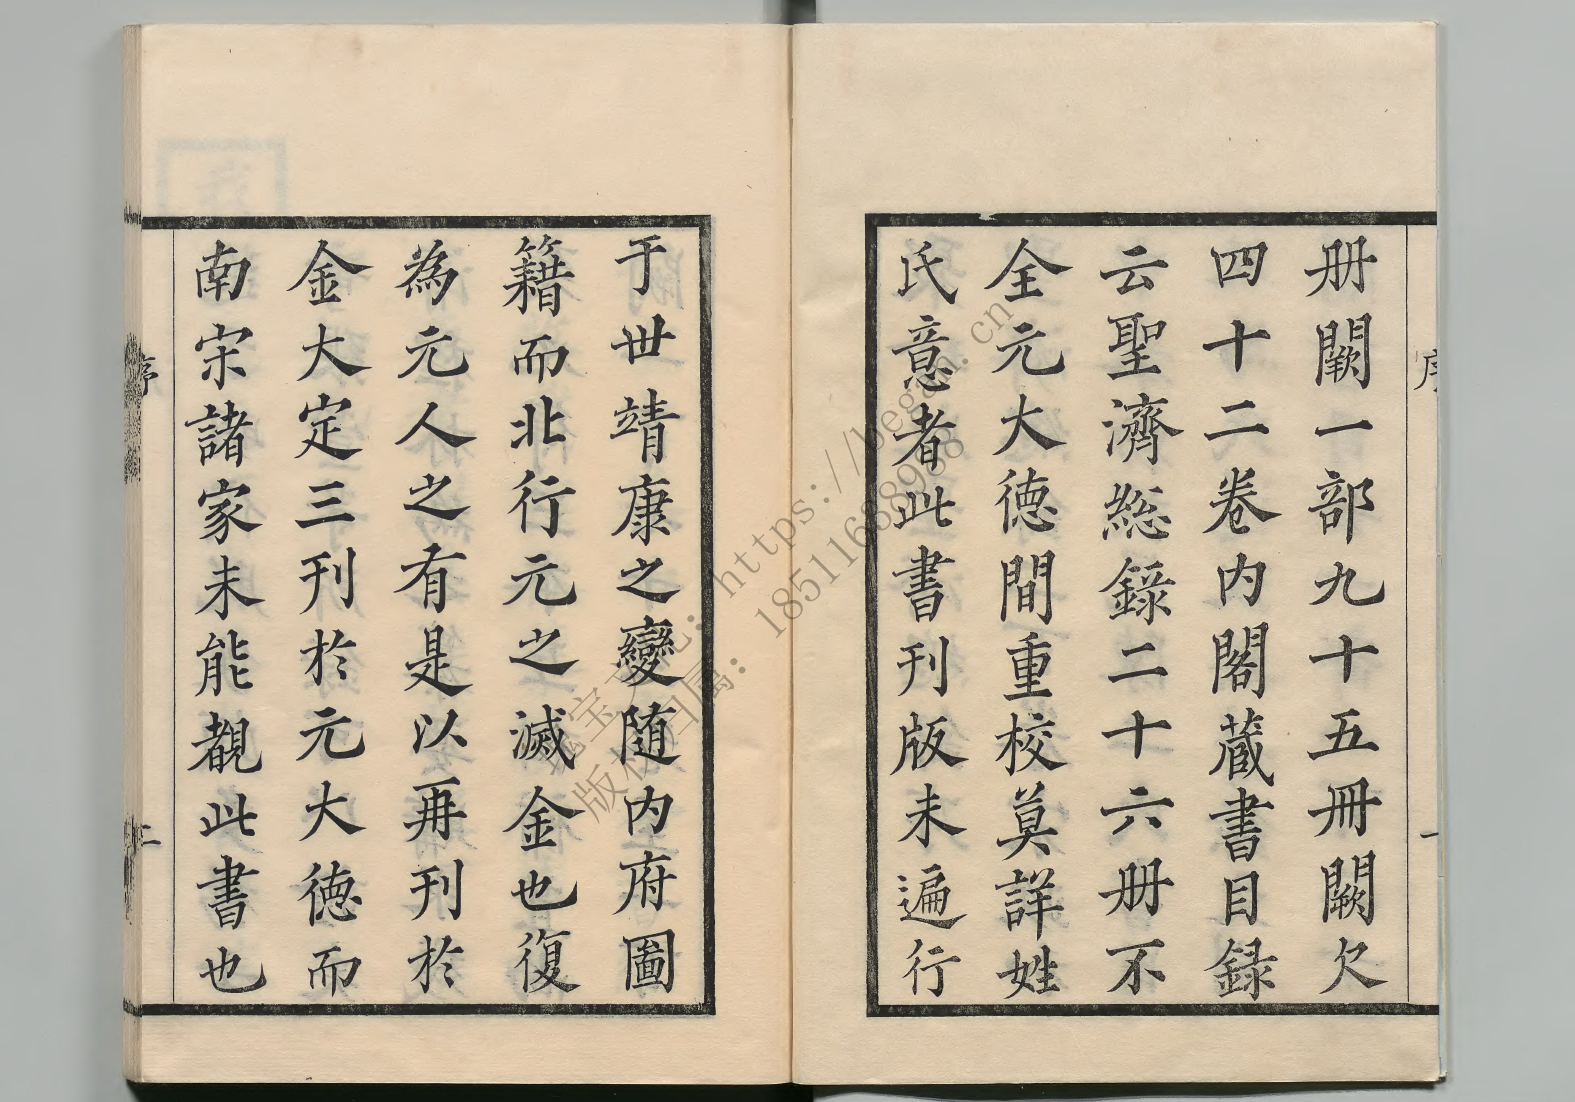 册闕一部九十五冊闕欠
四十二卷内閣蔵書目録
云聖濟総録二十六册不
全元大徳間重校莫詳姓
氏意者此書刊版未遍行
于世靖康之變随内府圖
籍而北行元之滅金也復
為元人之有是以再刊於
金大定三刊於元大徳而
南宋諸家未能覩此書也
序
一
序
二
https://began.cn
版权归属：18511688988